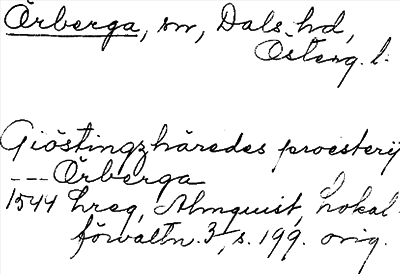 Örberga, sn, Dals hd,
Östergötl. l.
Giöstingzhäredes proesterij
--- Örberga
1544 hreg, Almquist, Lokal-
förvaltn. 3, s. 199. orig.